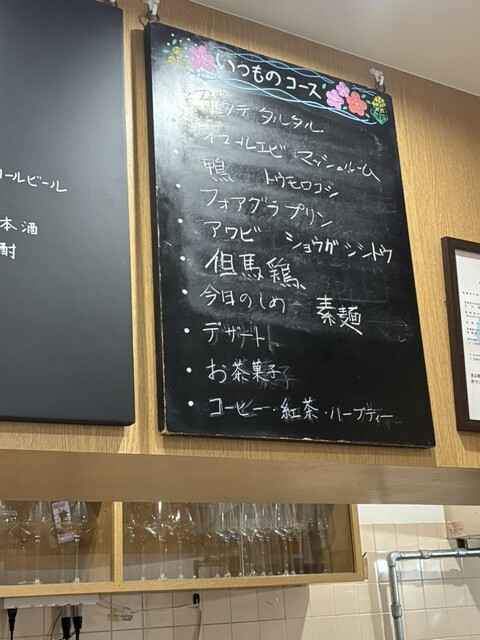 いつものコース
ホタテ タルタル
オマールエビ マッシュルーム
鴨 トウモロコシ
フォアグラ プリン
アワビ ショウガ シシトウ
但馬鶏
今日のしめ 素麺
デザート
お茶菓子
コーヒー・紅茶・ハーブティー
コールビール
本酒
酎